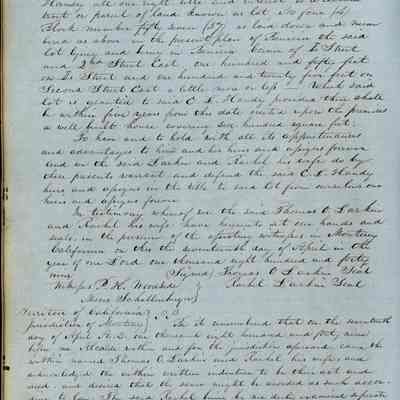 Handy all our right title and interest in a certain
tract or parcel of land known as lot No four (4)
Block number fifty seven (57) as laid down and num
bered as above in the present plan of Benicia the said
lot lying and being in Benicia corner of Street
and 2nd Street East one hundred and fifty feet
on Street and one hundred and twenty five feet on
Second Street East a little more or less. Which said
lot is granted to said C. I. Handy provided there shall
be within five years from this date erected upon the premises
a well built house covering six hundred square feet.
To have and to hold with all its appurtenances
and advantages to him and his heirs and assigns forever
And we the said Larkin and Rachel his wife do by
these presents warrant and defend the said C. I. Handy
heirs and assigns in the title to said lot from ourselves our
heirs and assigns forever
In testimony whereof we the said Thomas O. Larkin
and Rachel his wife have hereunto set our hands and
seals, in the presence of the attesting witnesses in Monterey
California on this the seventeenth day of April in the
year of our Lord one thousand eight hundred and forty
nine (Signed) Thomas O Larkin Seal
Witness P. H. Rachel Larkin Seal
Moses Schallenberger
Territory of California } S.S
Jurisdiction of Monterey } Be it remembered that on the seventeenth
day of April A.D. one thousand eight hundred and forty nine
before me Alcalde within and for the jurisdiction aforesaid came the
within named Thomas O Larkin and Rachel his wife and
acknowledged the within written indenture to be their act and
deed and desired that the same might be recorded as such accor-
ding to law. The said Rachel being by me duly examined separate